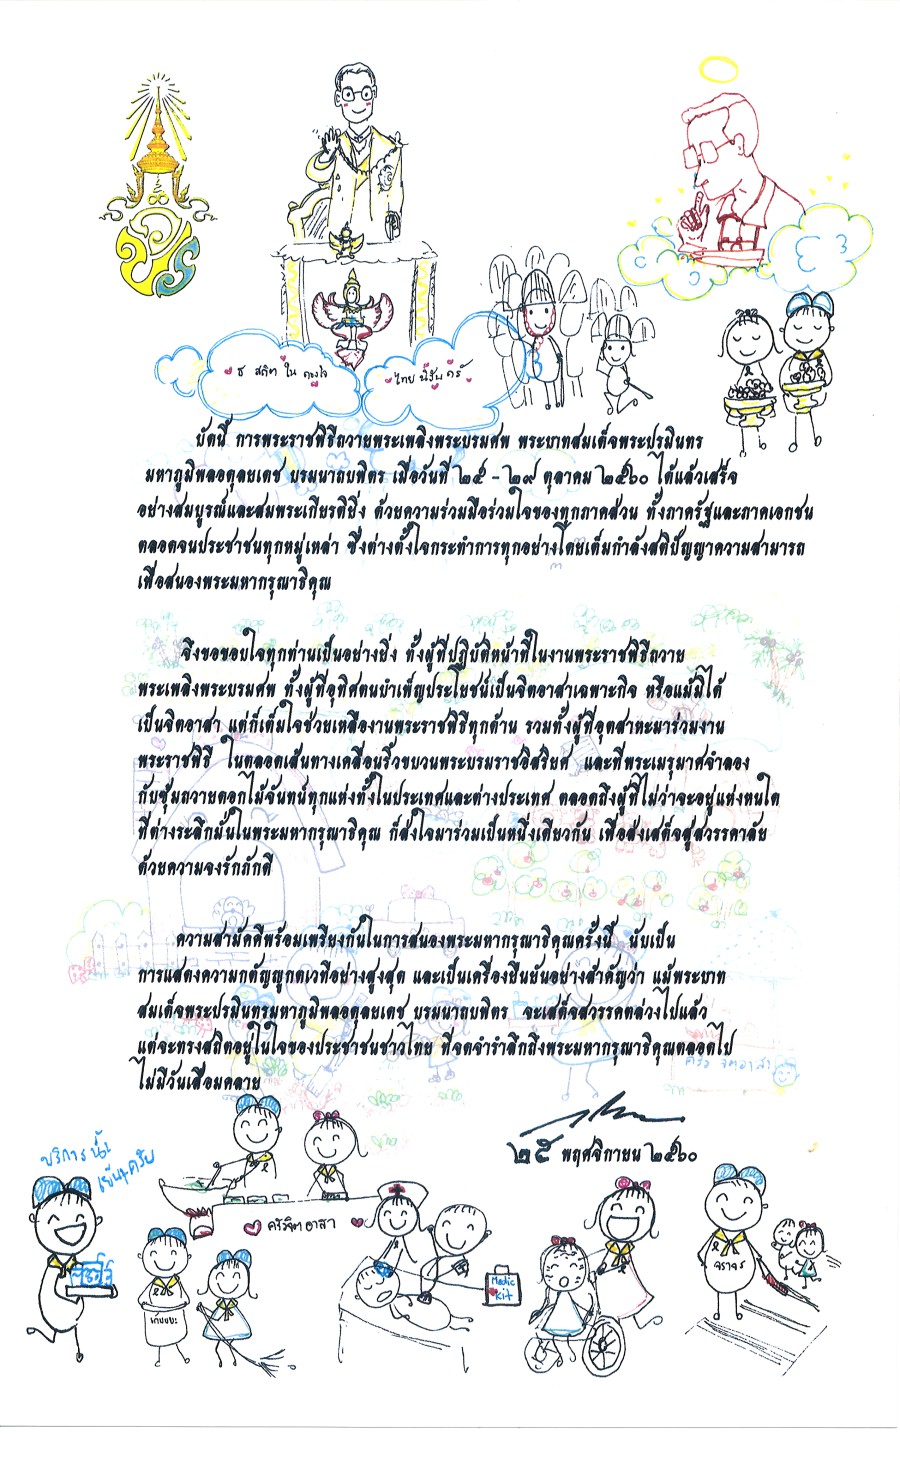 ธ สถิต ใน ดวงใจ
ไทย นิรันดร์
บัดนี้ การพระราชพิธีถวายพระเพลิงพระบรมศพ พระบาทสมเด็จพระปรมินทร
มหาภูมิพลอดุลยเดช บรมนาถบพิตร เมื่อวันที่ ๒๕ - ๒๙ ตุลาคม ๒๕๖๐ ได้แล้วเสร็จ
อย่างสมบูรณ์และสมพระเกียรติยิ่ง ด้วยความร่วมมือร่วมใจของทุกภาคส่วน ทั้งภาครัฐและภาคเอกชน
ตลอดจนประชาชนทุกหมู่เหล่า ซึ่งต่างตั้งใจกระทำการทุกอย่างโดยเต็มกำลังสติปัญญาความสามารถ
เพื่อสนองพระมหากรุณาธิคุณ
จึงขอขอบใจทุกท่านเป็นอย่างยิ่ง ทั้งผู้ที่ปฏิบัติหน้าที่ในงานพระราชพิธีถวาย
พระเพลิงพระบรมศพ ทั้งผู้ที่อุทิศตนบำเพ็ญประโยชน์เป็นจิตอาสาเฉพาะกิจ หรือแม้มิได้
เป็นจิตอาสา แต่ก็เต็มใจช่วยเหลืองานพระราชพิธีทุกด้าน รวมทั้งผู้ที่อุตสาหะมาร่วมงาน
พระราชพิธี ในตลอดเส้นทางเคลื่อนริ้วขบวนพระบรมราชอิสริยยศ และที่พระเมรุมาศจำลอง
กับซุ้มถวายดอกไม้จันทน์ทุกแห่งทั้งในประเทศและต่างประเทศ ตลอดถึงผู้ที่ไม่ว่าจะอยู่แห่งหนใด
ที่ต่างระลึกมั่นในพระมหากรุณาธิคุณ ก็ตั้งใจมาร่วมเป็นหนึ่งเดียวกัน เพื่อส่งเสด็จสู่สวรรคาลัย
ด้วยความจงรักภักดี
ความสามัคคีพร้อมเพรียงกันในการสนองพระมหากรุณาธิคุณครั้งนี้ นับเป็น
การแสดงความกตัญญูกตเวทีอย่างสูงสุด และเป็นเครื่องยืนยันอย่างสำคัญว่า แม้พระบาท
สมเด็จพระปรมินทรมหาภูมิพลอดุลยเดช บรมนาถบพิตร จะเสด็จสวรรคตล่วงไปแล้ว
แต่จะทรงสถิตอยู่ในใจของประชาชนชาวไทย ที่จดจำรำลึกถึงพระมหากรุณาธิคุณตลอดไป
ไม่มีวันเสื่อมคลาย
ครัว จิตอาสา
๒๕ พฤศจิกายน ๒๕๖๐
บริการน้ำ
เย็นๆครับ
ครัวจิตอาสา
เก็บขยะ
Medic
Kit
จราจร